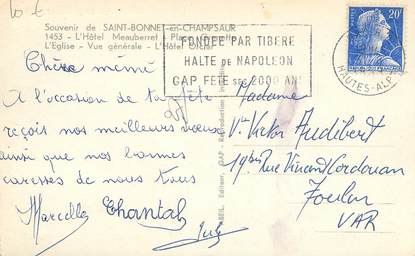 10 €
Souvenir de SAINT-BONNET-en-CHAMPSAUR
1453 - L'Hôtel Meauberret - Place Grenette
L'Eglise - Vue générale - L'Hôtel
FONDÉE PAR TIBÈRE
HALTE de NAPOLEON
GAP FÊTE SES 2000 ANS
20F
HAUTES-ALPES
Chère mémé
A l'occasion de ta fête
reçoit nos meilleurs voeux
ainsi que nos bonnes
caresses de nous tous
Marcelle Chantal
Madame
Vve Victor Audibert
19bis Rue Vincent Cordouan
Toulon
VAR